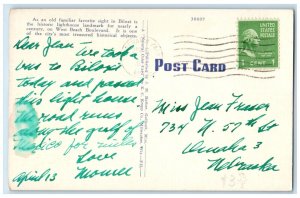 As an old familiar favorite sight in Biloxi is
the historic lighthouse landmark for nearly a
century, on West Beach Boulevard. It is one
of the city's most treasured historical objects.
38697
POST CARD
1 CENT 1
Dear Jean We took a
bus to Biloxi
today and passed
this light house
the road runs
along the gulf of
Mexico for miles
Love
April 13
Miss Jean Fraser
734 N. 57th St
Omaha 3
Nebraska